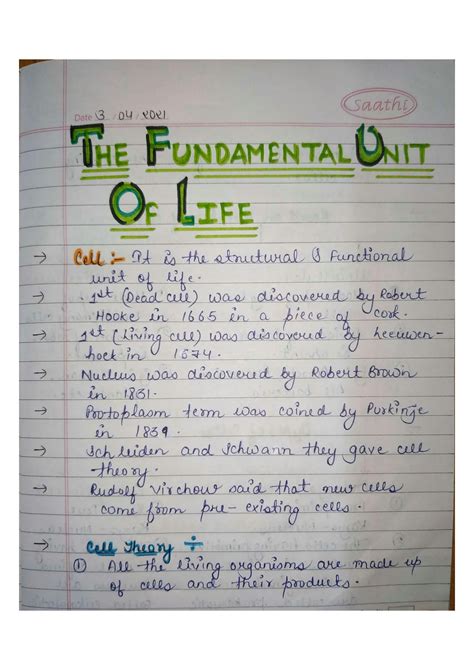 Saathi
Date 3 / 04 / 2021
THE FUNDAMENTAL UNIT
OF LIFE
→ Cell :- It is the strutural & Functional
unit of life.
→ 1st (Dead cell) was discovered by Robert
Hooke in 1665 in a piece of cork.
→ 1st (Living cell) was discovered by Leeuwen-
hock in 1674.
→ Nucleus was discovered by Robert Brown
in 1831.
→ Protoplasm term was coined by Purkinje
in 1839.
→ Schleiden and Schwann they gave cell
theory.
→ Rudolf Virchow said that new cells
come from pre-existing cells.
→ Cell Theory ÷
① All the living organisms are made up
of cells and their products.